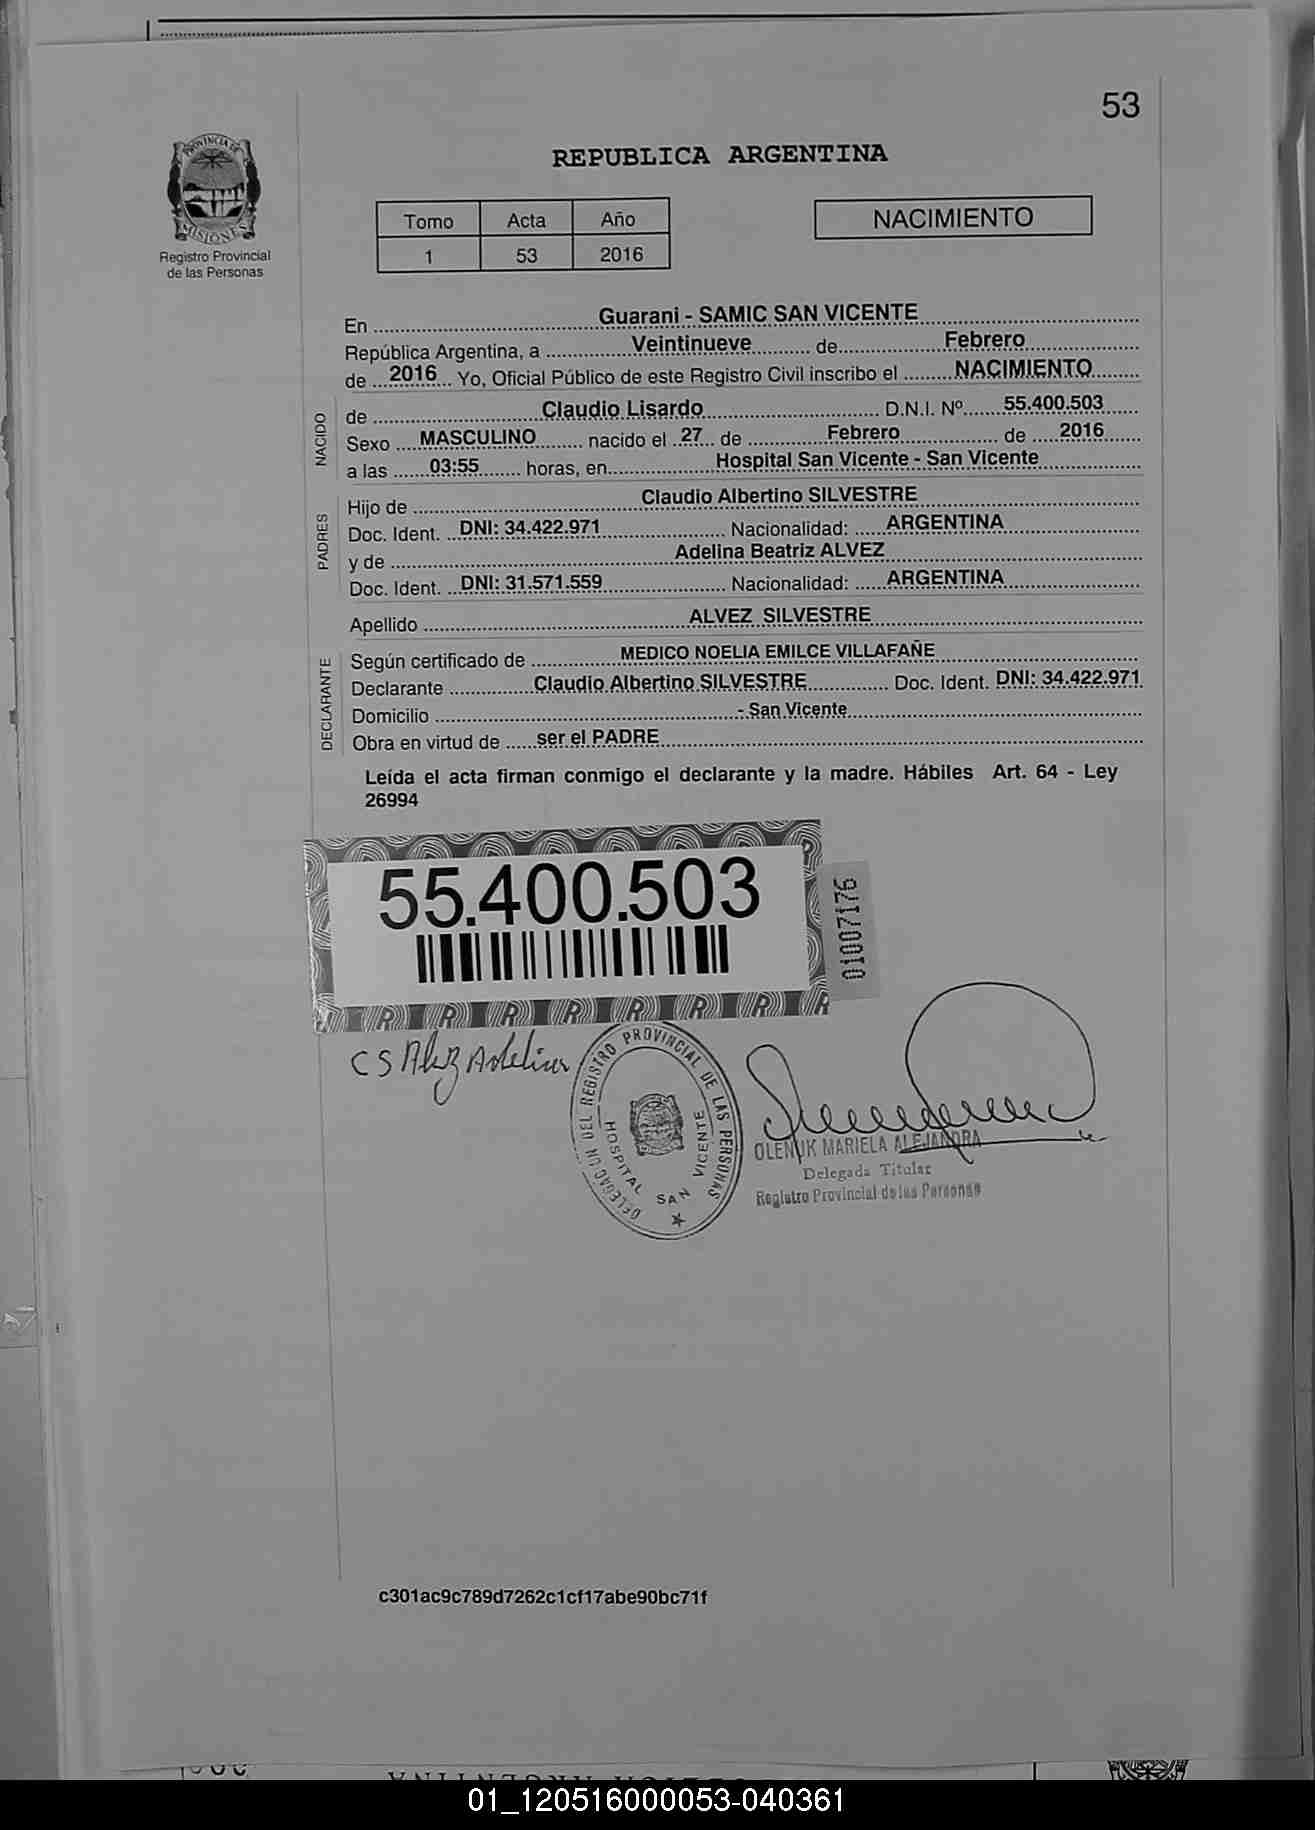 53
PROVINCIA DE
MISIONES
Registro Provincial
de las Personas
REPUBLICA ARGENTINA
Tomo Acta Año
1 53 2016
NACIMIENTO
En Guarani - SAMIC SAN VICENTE
República Argentina, a Veintinueve de Febrero
de 2016 Yo, Oficial Público de este Registro Civil inscribo el NACIMIENTO
NACIDO
de Claudio Lisardo D.N.I. Nº 55.400.503
Sexo MASCULINO nacido el 27 de Febrero de 2016
a las 03:55 horas, en Hospital San Vicente - San Vicente
PADRES
Hijo de Claudio Albertino SILVESTRE
Doc. Ident. DNI: 34.422.971 Nacionalidad: ARGENTINA
y de Adelina Beatriz ALVEZ
Doc. Ident. DNI: 31.571.559 Nacionalidad: ARGENTINA
Apellido ALVEZ SILVESTRE
DECLARANTE
Según certificado de MEDICO NOELIA EMILCE VILLAFAÑE
Declarante Claudio Albertino SILVESTRE Doc. Ident. DNI: 34.422.971
Domicilio - San Vicente
Obra en virtud de ser el PADRE
Leída el acta firman conmigo el declarante y la madre. Hábiles Art. 64 - Ley
26994
55.400.503
01007176
R R R R R R R R
C S Alvez Adelina
DELEGACION DEL REGISTRO PROVINCIAL DE LAS PERSONAS
HOSPITAL SAN VICENTE
OLENIUK MARIELA ALEJANDRA
Delegada Titular
Registro Provincial de las Personas
c301ac9c789d7262c1cf17abe90bc71f
01_120516000053-040361